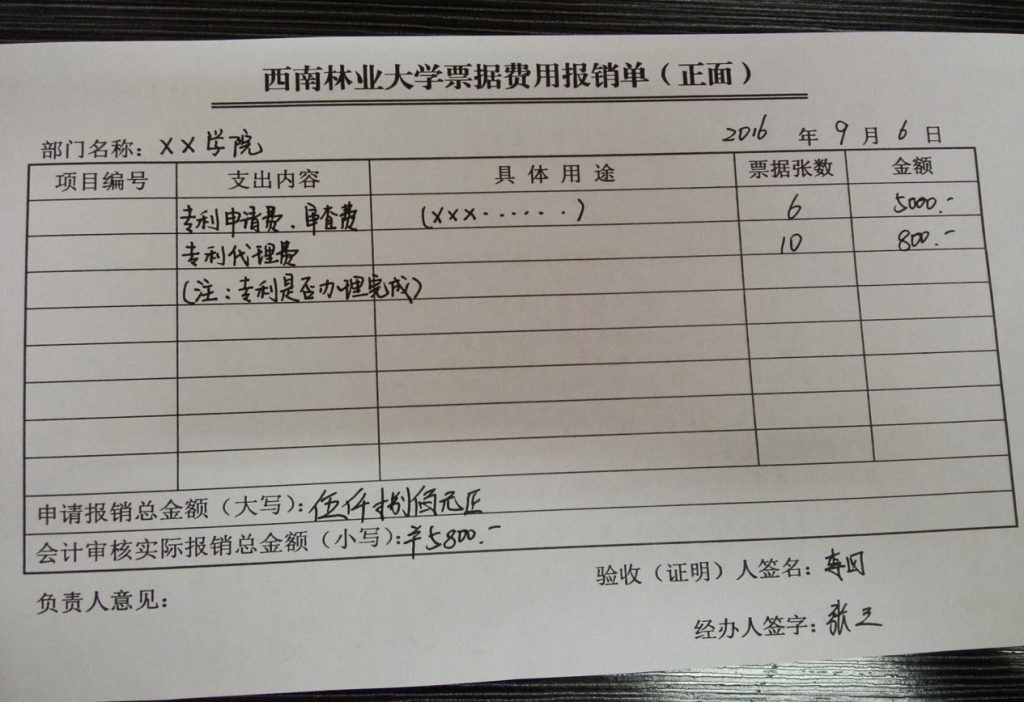 西南林业大学票据费用报销单（正面）
部门名称：XX学院 2016 年 9 月 6 日
项目编号 支出内容 具体用途 票据张数 金额
专利申请费、审查费 (xxx······) 6 5000.-
专利代理费 10 800.-
(注：专利是否办理完成)
申请报销总金额（大写）：伍仟捌佰元正
会计审核实际报销总金额（小写）：¥5800.-
负责人意见： 验收（证明）人签名：李四
经办人签字：张三